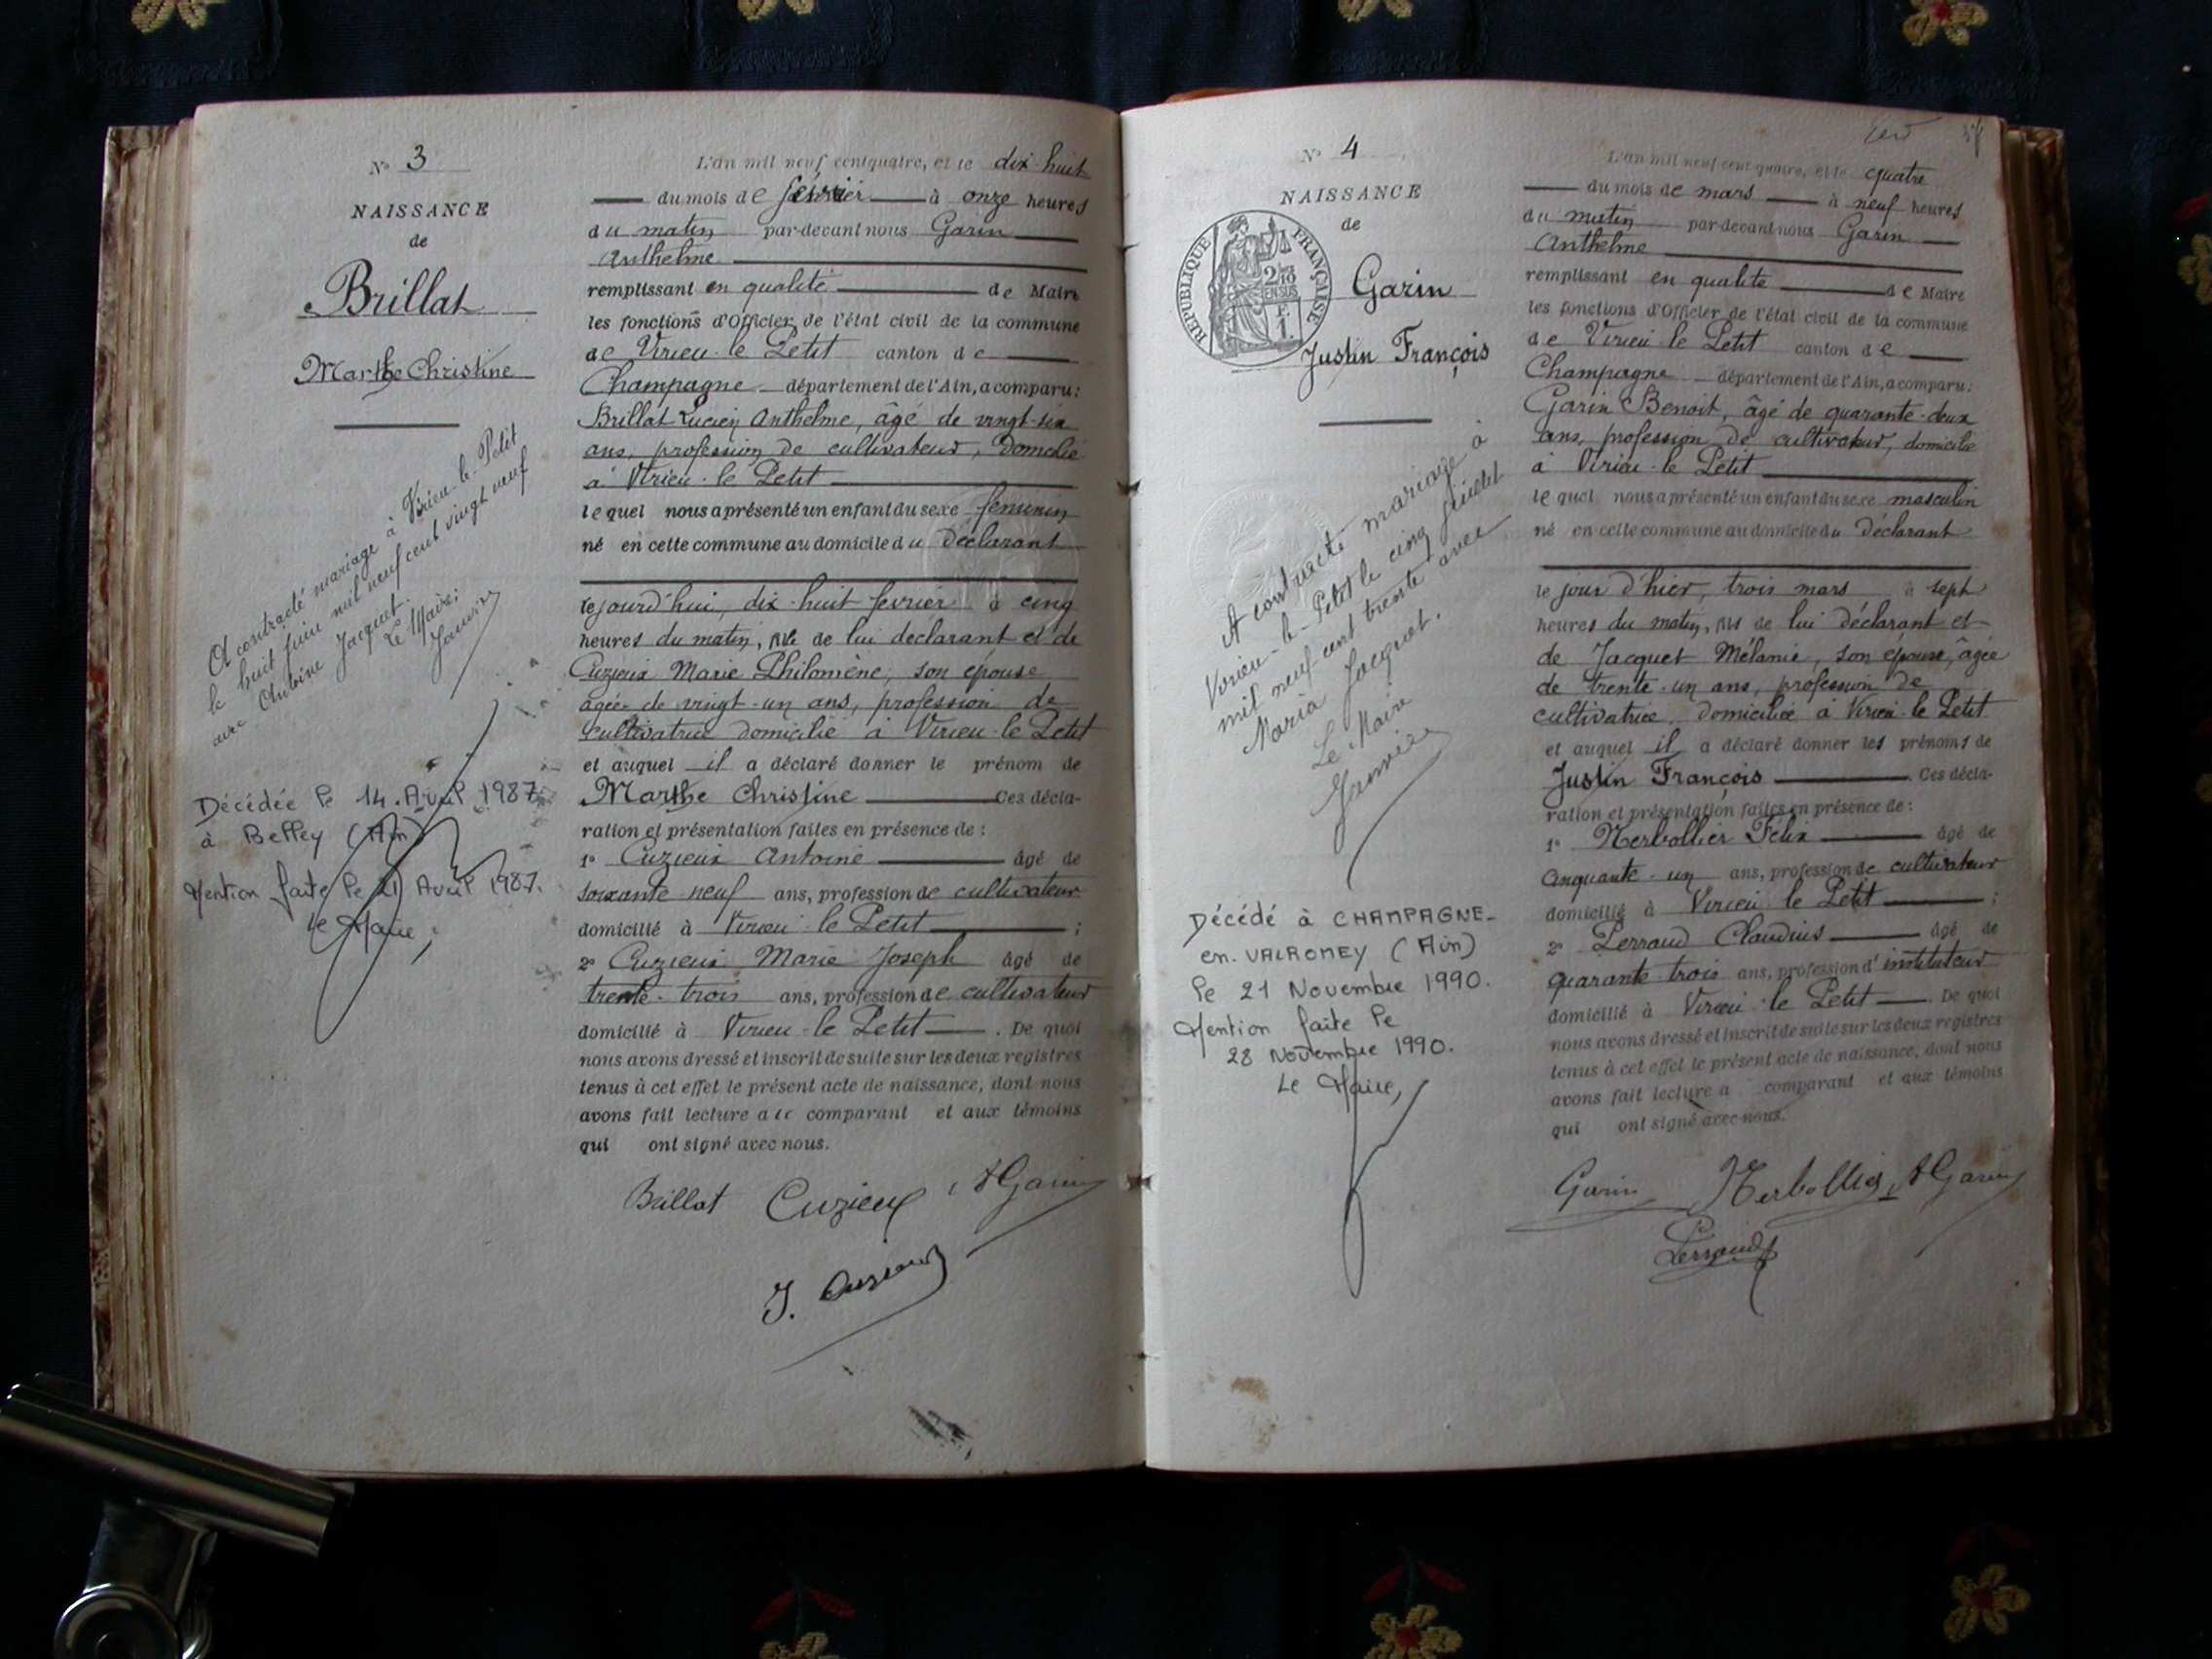 N° 3
NAISSANCE
de
Brillat
Marthe Christine
A contracté mariage à Virieu-le-Petit
le huit juin mil neuf cent vingt neuf
avec Antoine Jacquet.
Le Maire;
Janvier
Décédée le 14 Avril 1987
à Belley (Ain)
Mention faite le 21 Avril 1987.
le Maire;
L'an mil neuf cent quatre, et le dix-huit
du mois de février à onze heures
du matin par-devant nous Garin
Anthelme
remplissant en qualité de Maire
les fonctions d'Officier de l'état civil de la commune
de Virieu-le-Petit canton de
Champagne département de l'Ain, a comparu:
Brillat Lucien Anthelme, âgé de vingt-six
ans, profession de cultivateur, domicilié
à Virieu-le-Petit
lequel nous a présenté un enfant du sexe féminin
né en cette commune au domicile du déclarant
ce jourd'hui, dix-huit fevrier à cinq
heures du matin, fille de lui declarant et de
Cuzieux Marie Philomène, son épouse
agée de vingt-un ans, profession de
cultivatrice domicilié à Virieu-le-Petit
et auquel il a déclaré donner le prénom de
Marthe Christine Ces décla-
ration et présentation faites en présence de:
1° Cuzieux Antoine âgé de
soixante-neuf ans, profession de cultivateur
domicilié à Virieu-le-Petit ;
2° Cuzieux Marie Joseph âgé de
trente-trois ans, profession de cultivateur
domicilié à Virieu-le-Petit . De quoi
nous avons dressé et inscrit de suite sur les deux registres
tenus à cet effet le présent acte de naissance, dont nous
avons fait lecture au comparant et aux témoins
qui ont signé avec nous.
Brillat Cuzieux A Garin
J. Cuzieux
N° 4
NAISSANCE
de
REPUBLIQUE FRANÇAISE
2/10 EN SUS
F. 1.
Garin
Justin François
A contracté mariage à
Virieu-le-Petit le cinq juillet
mil neuf cent trente avec
Maria Jacquet.
Le Maire
Janvier
Décédé à CHAMPAGNE-
en-VALROMEY (Ain)
le 21 Novembre 1990.
Mention faite le
28 Novembre 1990.
Le Maire,
L'an mil neuf cent quatre, et le quatre
du mois de mars à neuf heures
du matin par-devant nous Garin
Anthelme
remplissant en qualité de Maire
les fonctions d'Officier de l'état civil de la commune
de Virieu-le-Petit canton de
Champagne département de l'Ain, a comparu:
Garin Benoit, âgé de quarante-deux
ans, profession de cultivateur, domicilié
à Virieu-le-Petit
lequel nous a présenté un enfant du sexe masculin
né en cette commune au domicile du déclarant
le jour d'hier, trois mars à sept
heures du matin, fils de lui déclarant et
de Jacquet Mélanie, son épouse, âgée
de trente-un ans, profession de
cultivatrice domiciliée à Virieu-le-Petit
et auquel il a déclaré donner les prénoms de
Justin François Ces décla-
ration et présentation faites en présence de:
1° Nerbollier Félix âgé de
cinquante-un ans, profession de cultivateur
domicilié à Virieu-le-Petit ;
2° Perraud Claudius âgé de
quarante-trois ans, profession d'instituteur
domicilié à Virieu-le-Petit . De quoi
nous avons dressé et inscrit de suite sur les deux registres
tenus à cet effet le présent acte de naissance, dont nous
avons fait lecture a comparant et aux témoins
qui ont signé avec nous.
Garin Nerbollier A Garin
Perraud